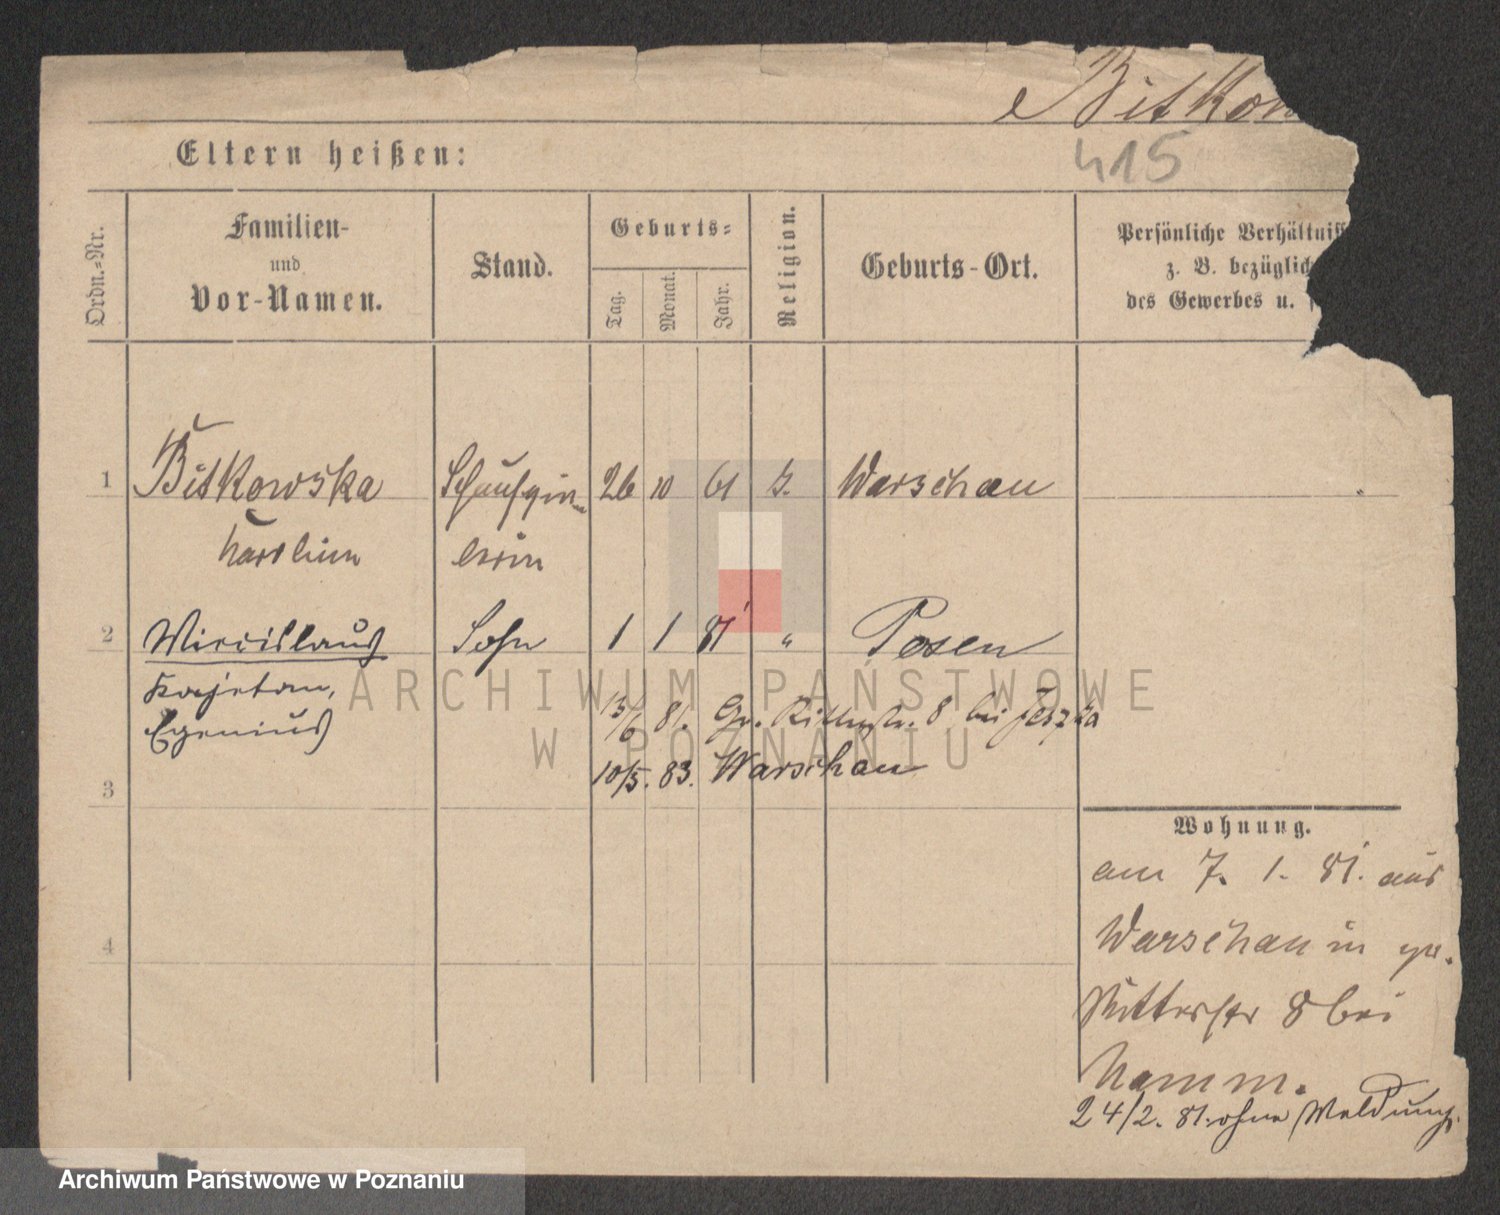 Bitkow
415
Eltern heißen:
Ordn.-Nr.
Familien-
und
Vor-Namen.
Stand.
Geburts-
Tag.
Monat.
Jahr.
Religion.
Geburts-Ort.
Persönliche Verhältniss
z. B. bezüglich
des Gewerbes u.
1 Bitkowska Schauspie- 26 10 61 Warschau
lerin
2 Miecislaus Sohn 1 1 81 " Posen
Kajetan,
Egenius
13/6 81. Gr. Ritterstr. 8 bei Jeszka
10/5. 83. Warschau
3
4
Wohnung.
am 7. 1. 81. aus
Warschau in gr.
Ritterstr 8 bei
Hamm.
24/2. 81. ohne Meldung.
ARCHIWUM PAŃSTWOWE
W POZNANIU
Archiwum Państwowe w Poznaniu